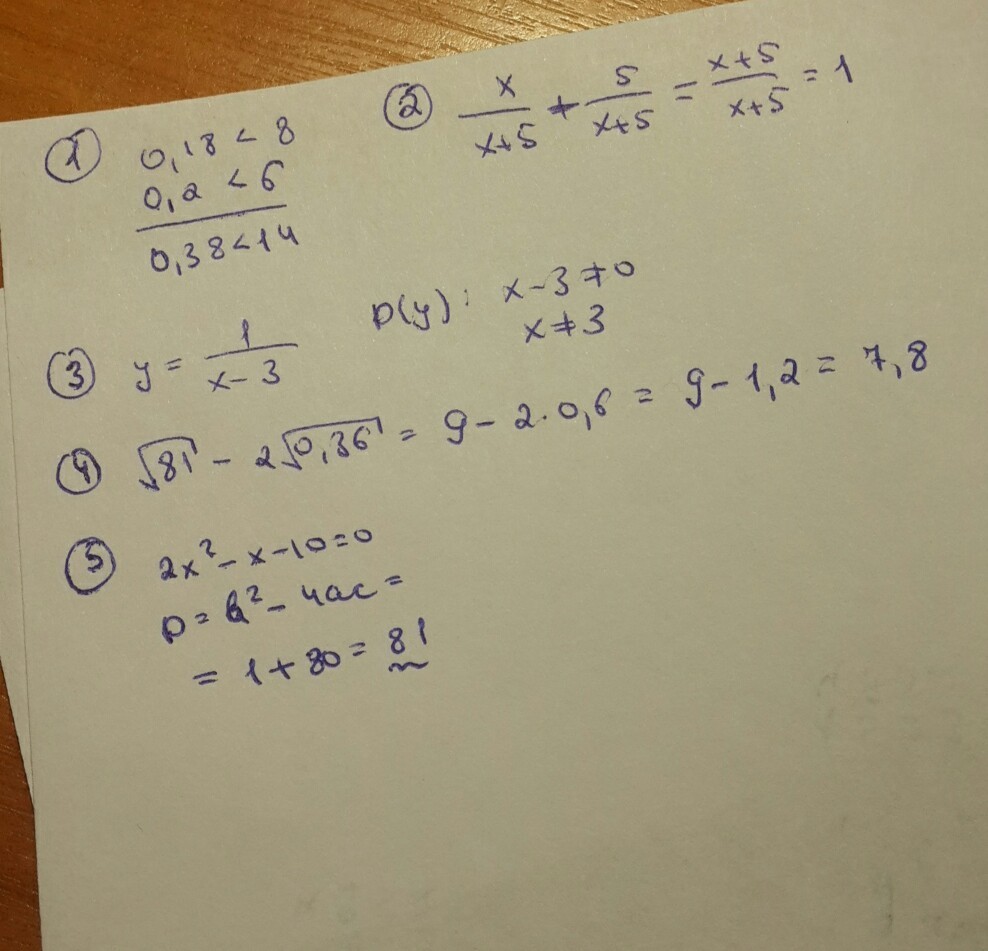 ① 0,18 < 8
0,2 < 6
0,38 < 14
② x/(x+5) + 5/(x+5) = (x+5)/(x+5) = 1
③ y = 1/(x-3) D(y): x-3≠0
x≠3
④ √81 - 2√0,36 = 9 - 2·0,6 = 9 - 1,2 = 7,8
⑤ 2x² - x - 10 = 0
D = b² - 4ac =
= 1 + 80 = 81